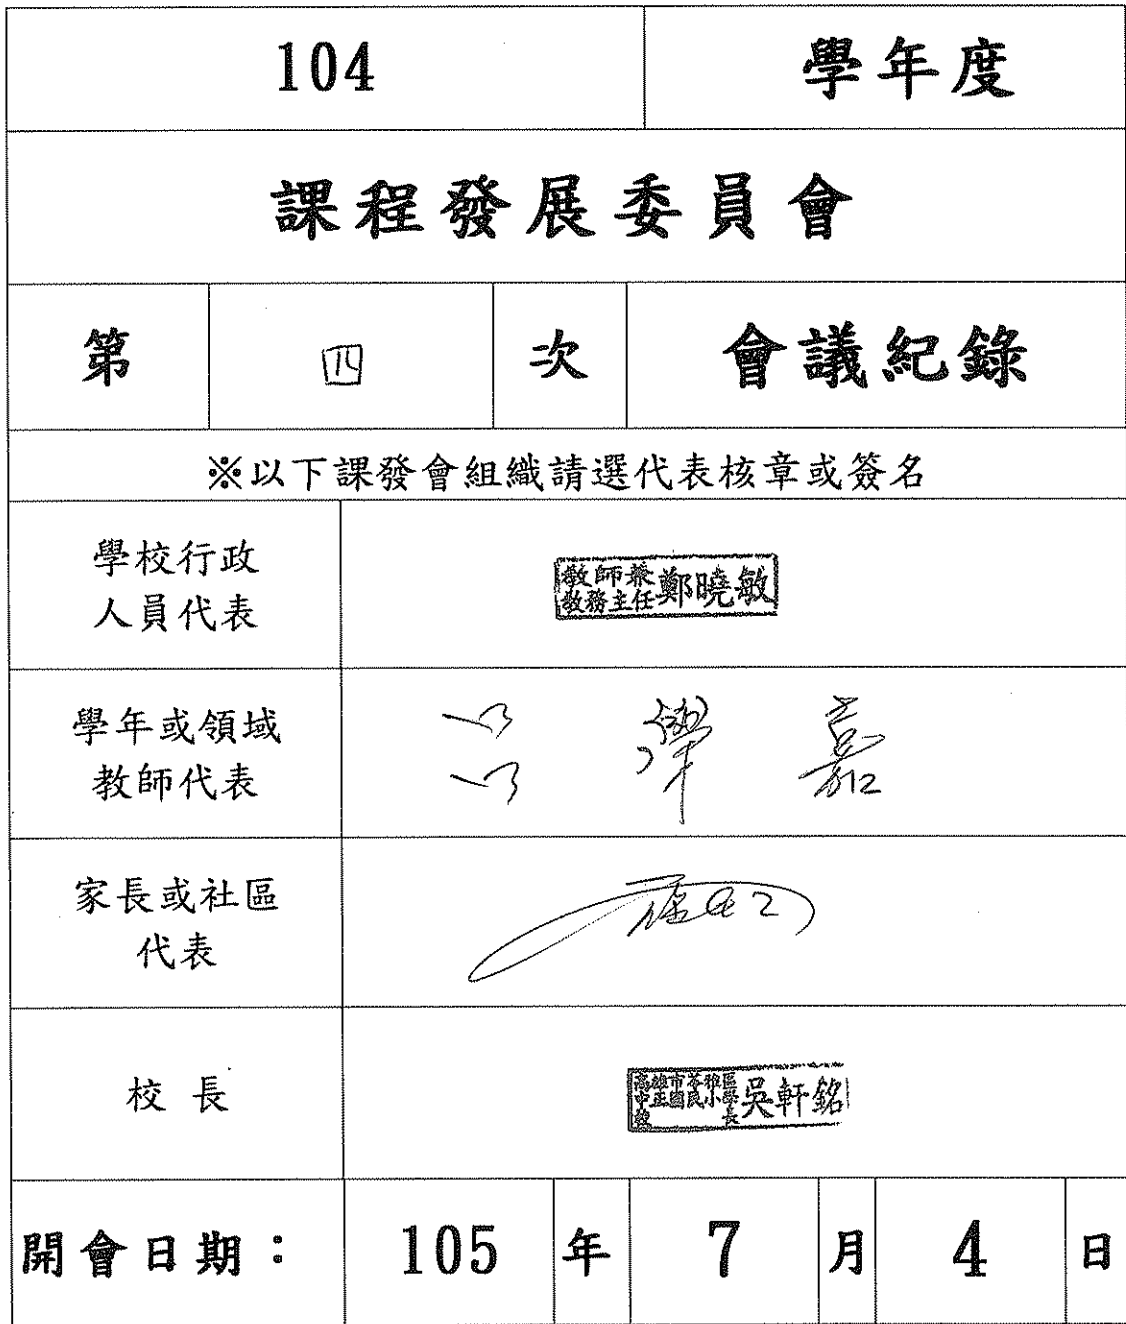 104 學年度
課程發展委員會
第 四 次 會議紀錄
※以下課發會組織請選代表核章或簽名
學校行政
人員代表
教師兼
教務主任
鄭曉敏
學年或領域
教師代表
嘉
家長或社區
代表
校長
高雄市苓雅區
中正國民小學
校長
吳軒銘
開會日期: 105 年 7 月 4 日